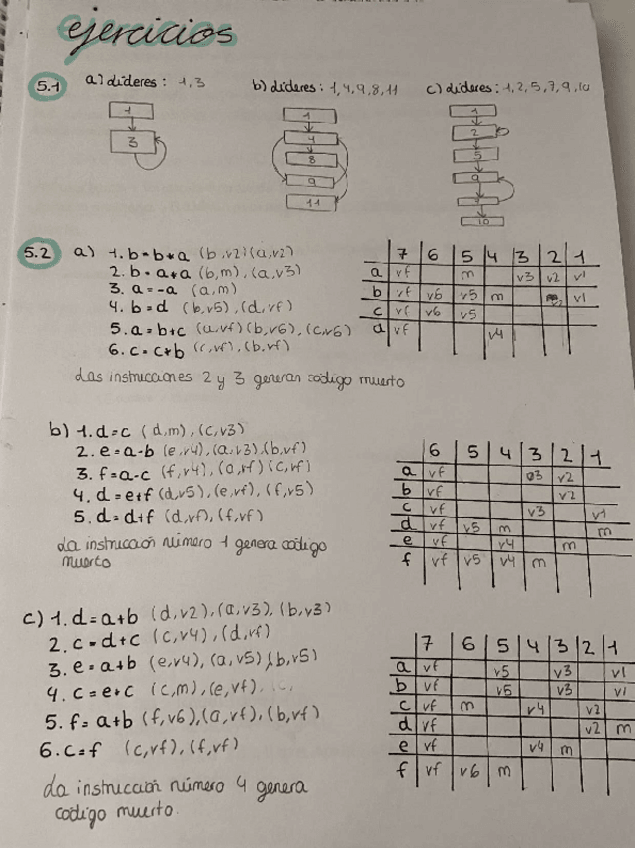 ejercicios
5.1 a) Líderes: 1,3
b) Líderes: 1,4,9,8,11
c) Líderes: 1,2,5,7,9,10
1
3
1
4
8
9
11
1
2
5
9
10
5.2 a) 1. b = b*a (b,v2)(a,v2)
2. b = a+a (b,m), (a,v3)
3. a = -a (a,m)
4. b = d (b,v5), (d,vf)
5. a = b+c (a,vf)(b,v6), (c,v6)
6. c = c+b (c,vf), (b,vf)
7 6 5 4 3 2 1
a vf m v3 v2 v1
b vf v6 v5 m v1
c vf v6 v5
d vf v4
Las instrucciones 2 y 3 generan código muerto
b) 1. d=c (d,m), (c,v3)
2. e = a-b (e,v4), (a,v3), (b,vf)
3. f = a-c (f,v4), (a,vf) (c,vf)
4. d = e+f (d,v5), (e,vf), (f,v5)
5. d = d+f (d,vf), (f,vf)
La instrucción número 1 genera código
muerto
6 5 4 3 2 1
a vf v3 v2
b vf v2
c vf v3 v1
d vf v5 m m
e vf v4 m
f vf v5 v4 m
c) 1. d = a+b (d,v2), (a,v3), (b,v3)
2. c = d+c (c,v4), (d,vf)
3. e = a+b (e,v4), (a,v5), (b,v5)
4. c = e+c (c,m), (e,vf)
5. f = a+b (f,v6), (a,vf), (b,vf)
6. c=f (c,vf), (f,vf)
La instrucción número 4 genera
código muerto.
7 6 5 4 3 2 1
a vf v5 v3 v1
b vf v5 v3 v1
c vf m v4 v2
d vf v2 m
e vf v4 m
f vf v6 m